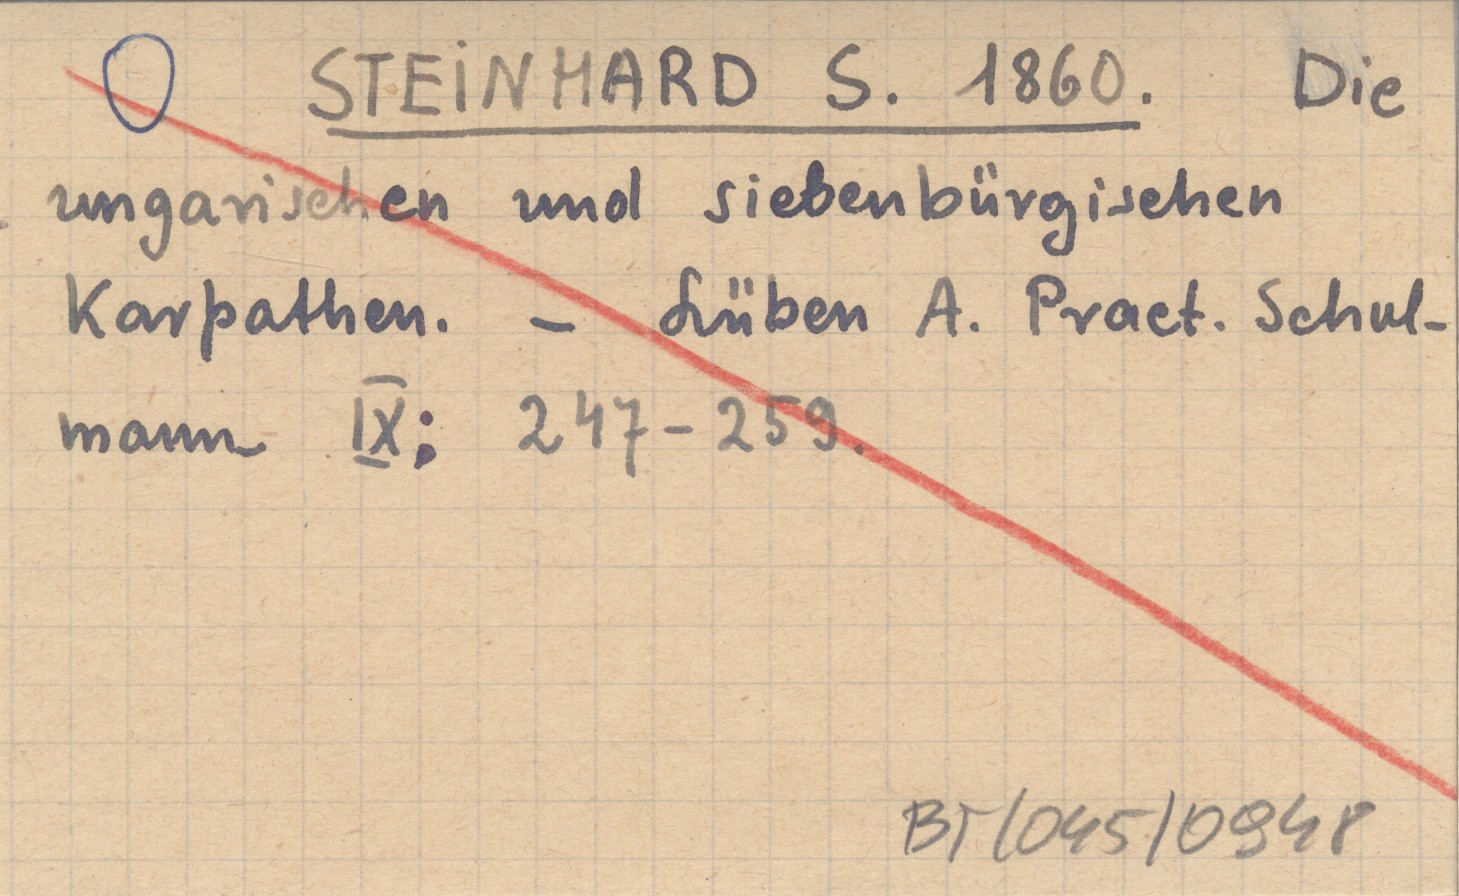 STEINHARD S. 1860. Die
ungarischen und siebenbürgischen
Karpathen. – Lüben A. Pract. Schul-
mann IX; 247-259.
BT/045/0948